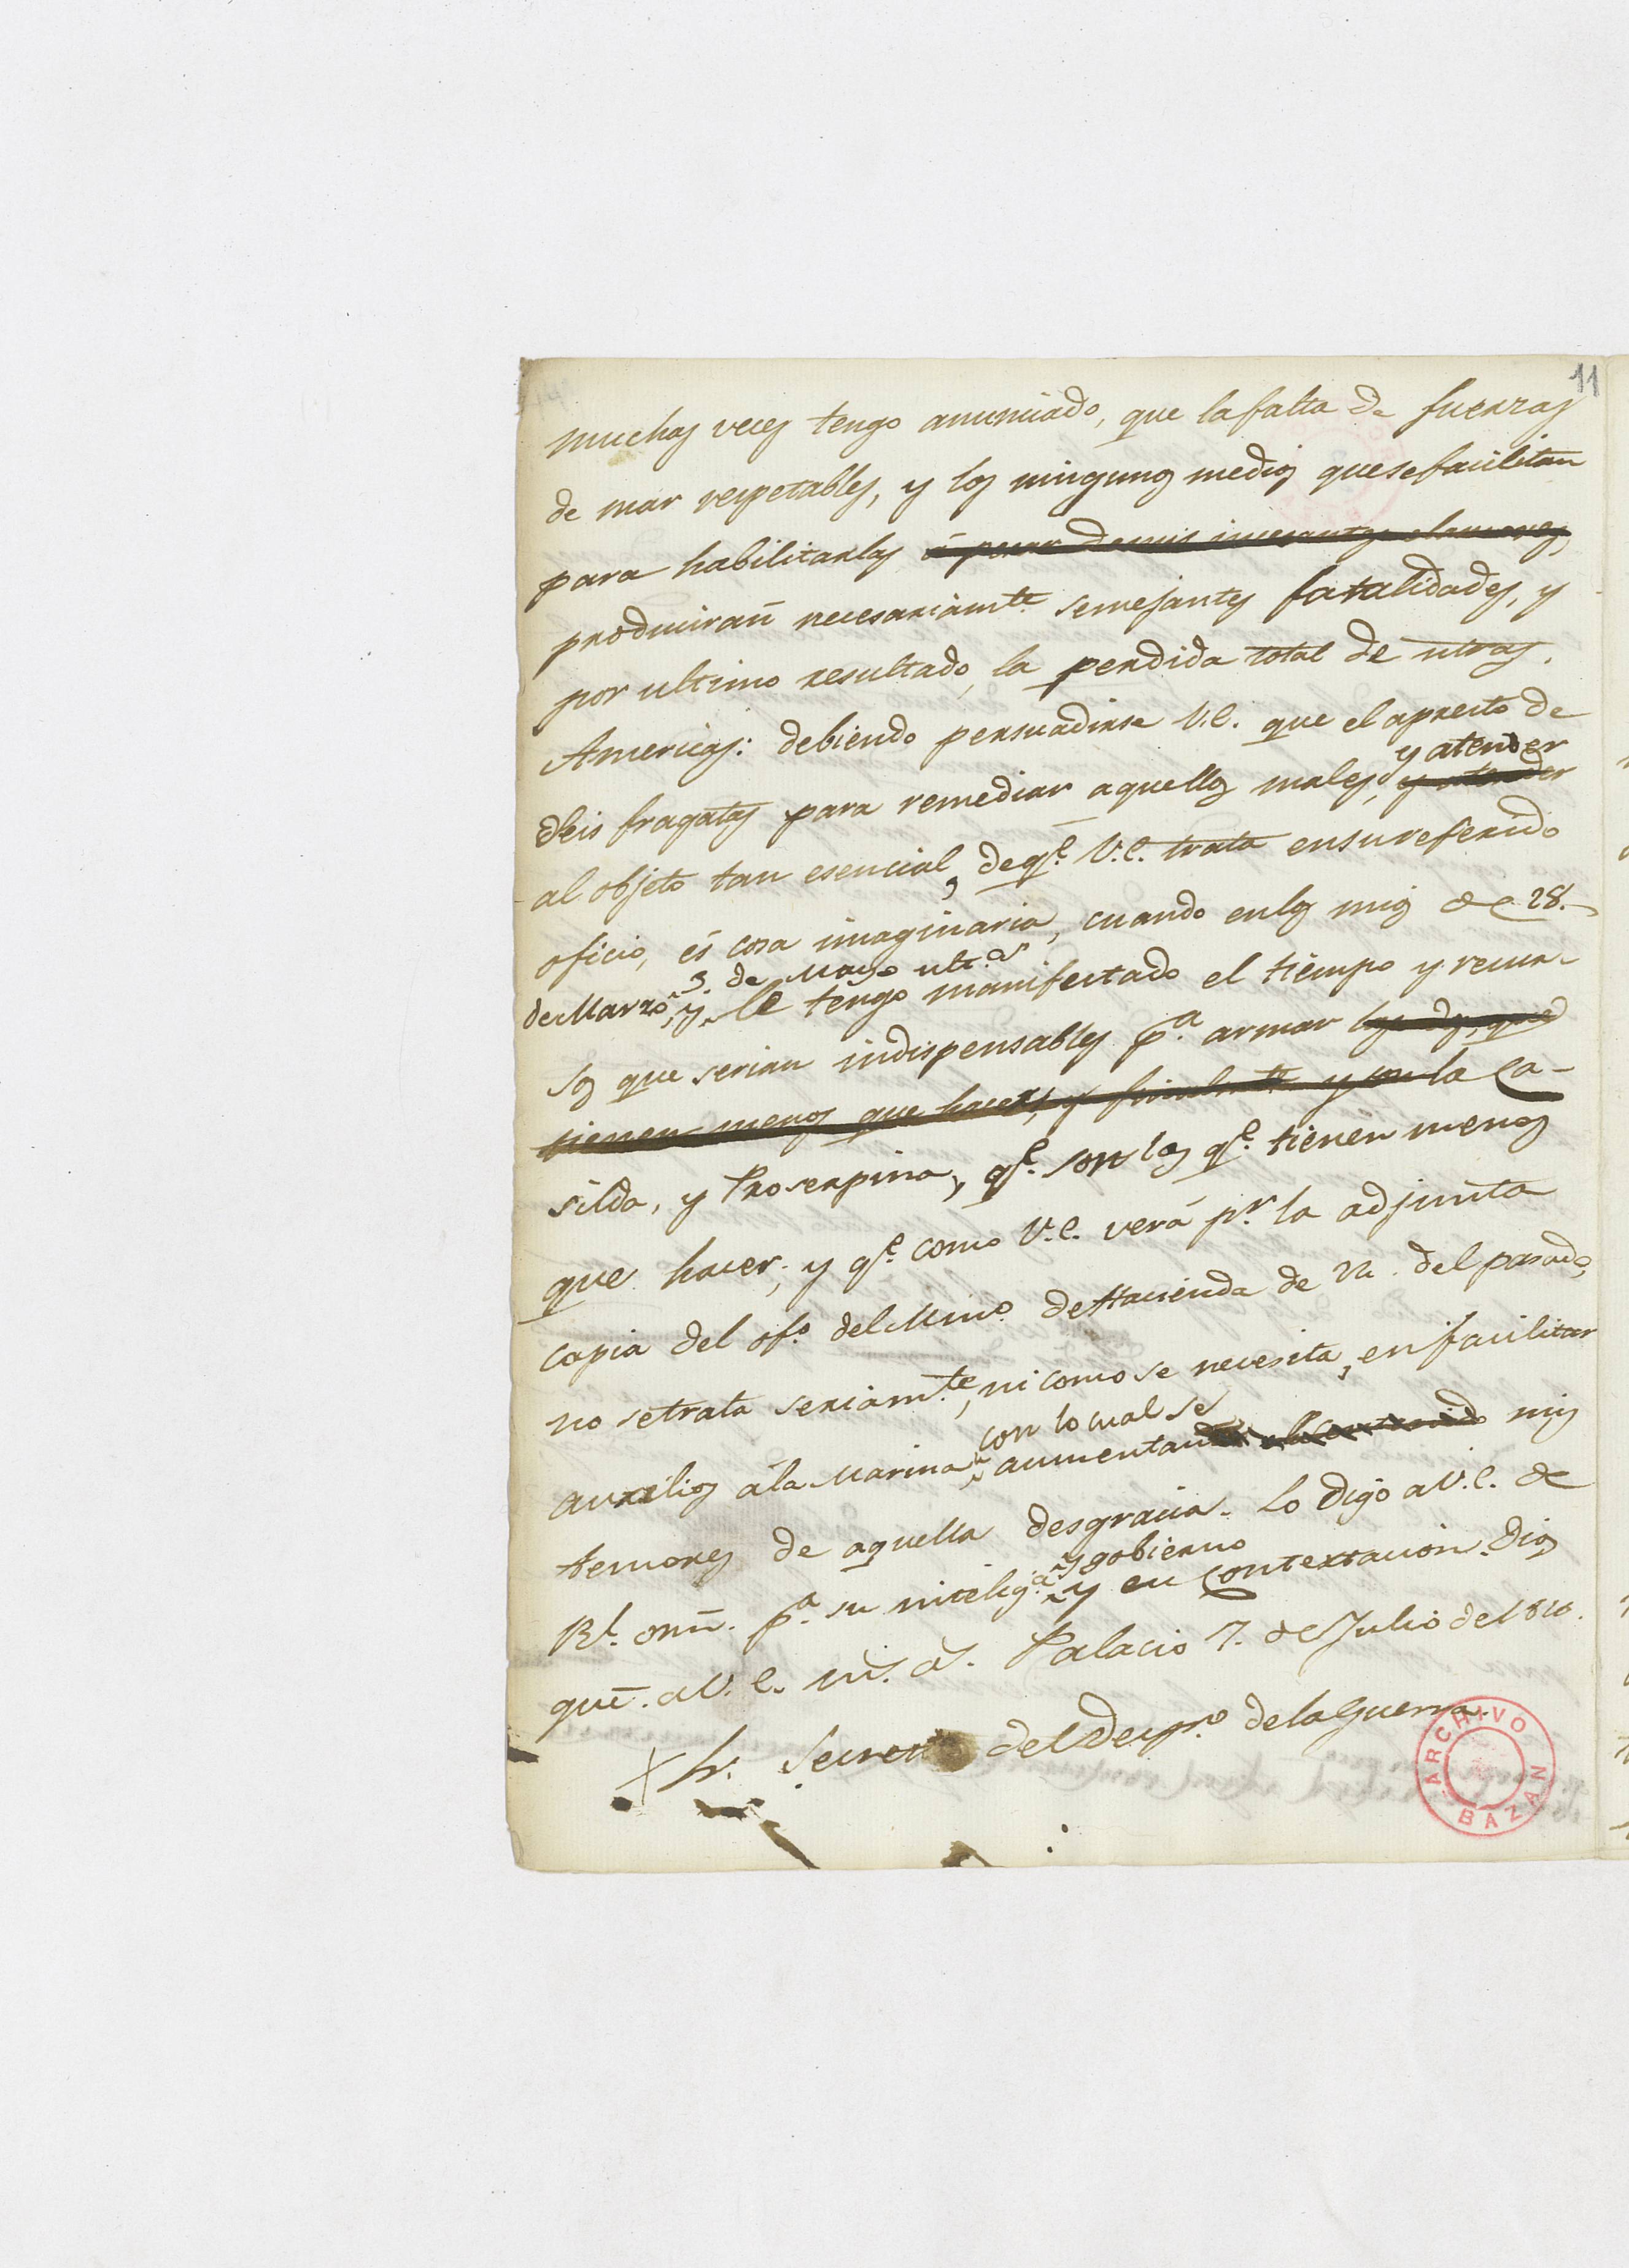 11
muchas veces tengo anunciado, que la falta de fuerzas
de mar respetables, y los ningunos medios que se facilitan
para habilitarlas á pesar de mis incesantes clamores,
producirañ necesariamte. semejantes fatalidades, y
por ultimo resultado, la perdida total de ntras.
Americas: debiendo persuadirse V.E. que el apresto de
y atender
seis fragatas para remediar aquellos males, y atender
al objeto tan esencial, de qe. V.E. trata en su referido
oficio, és cosa imaginaria, cuando en los mios de 28.
3. de Mayo ultos
de Marzo, y le tengo manifestado el tiempo y recur-
sos que serian indispensables pa. armar las dos, que
tienen menos que hacer, y la Ca-
silda, y Proserpina, qe. son las qe. tienen menos
que hacer; y qe. como V.E. verá pr. la adjunta
copia del ofo. del Mino. de Hacienda de del pasado,
no se trata seriamte., ni como se necesita, en facilitar
con lo cual se
auxilios á la Marina, aumentan mis
temores de aquella desgracia. Lo digo a V.E. de
y gobierno
Rl. orñ. pa. su inteliga. y en contextacion. Dios
gue. a V.E. ms. as. Palacio 7. de Julio de 1816.
Sr. Secreto del Despo. de la Guerra.
ARCHIVO
BAZAN